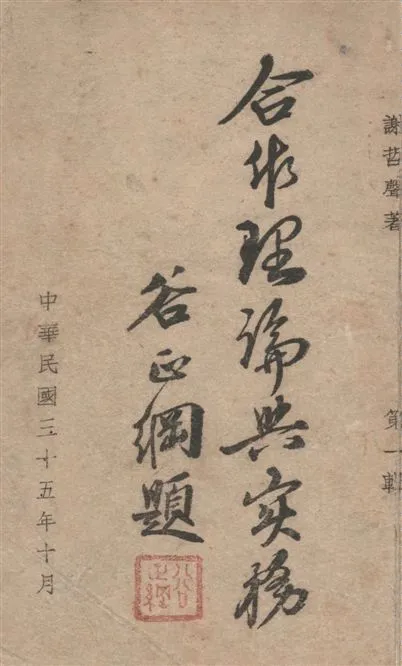 謝哲聲著 第一輯
合作理論與实務
谷正綱題
中華民國三十五年十月